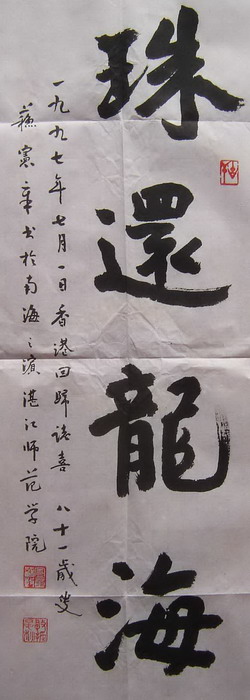 珠還龍海
一九九七年七月一日香港回歸誌喜 八十一歲叟
蘇憲章书於南海之濱湛江师范学院